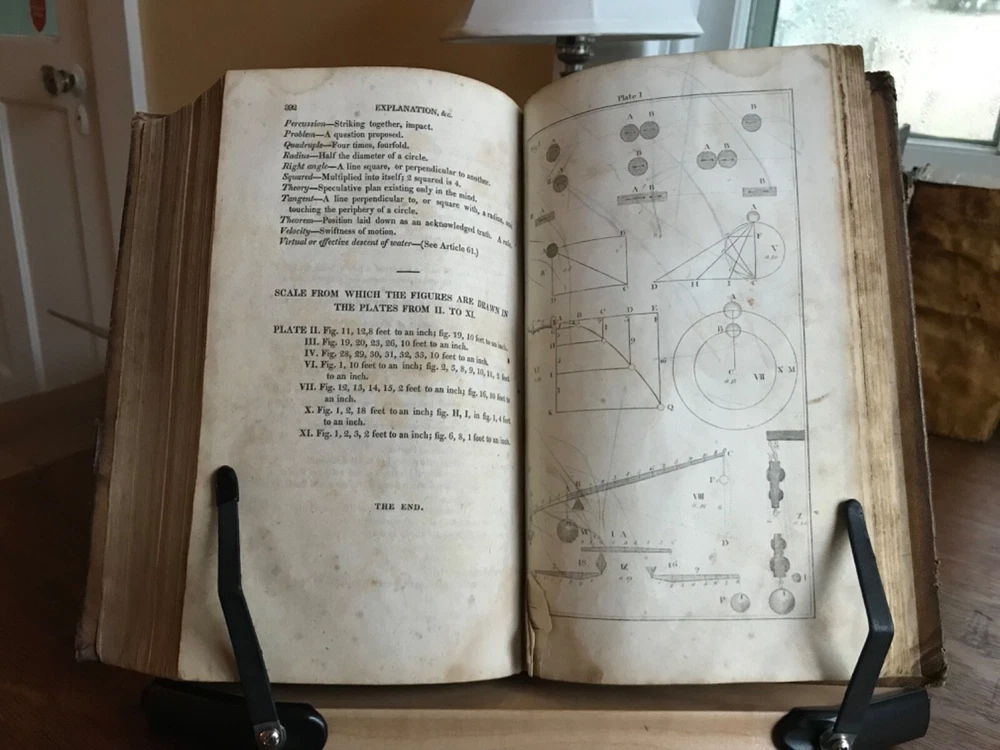 392 EXPLANATION, &c.
Percussion—Striking together, impact.
Problem—A question proposed.
Quadruple—Four times, fourfold.
Radius—Half the diameter of a circle.
Right angle—A line square, or perpendicular to another.
Squared—Multiplied into itself; 2 squared is 4.
Theory—Speculative plan existing only in the mind.
Tangent—A line perpendicular to, or square with, a radius, and
touching the periphery of a circle.
Theorem—Position laid down as an acknowledged truth. A rule.
Velocity—Swiftness of motion.
Virtual or effective descent of water—(See Article 61.)
SCALE FROM WHICH THE FIGURES ARE DRAWN IN
THE PLATES FROM II. TO XI.
PLATE II. Fig. 11, 12,8 feet to an inch; fig. 19, 10 feet to an inch.
III. Fig. 19, 20, 23, 26, 10 feet to an inch.
IV. Fig. 28, 29, 30, 31, 32, 33, 10 feet to an inch.
VI. Fig. 1, 10 feet to an inch; fig. 2, 3, 8, 9, 10, 11, 2 feet
to an inch.
VII. Fig. 12, 13, 14, 15, 2 feet to an inch; fig. 16, 10 feet to
an inch.
X. Fig. 1, 2, 18 feet to an inch; fig. H, I, in fig. 1, 4 feet
to an inch.
XI. Fig. 1, 2, 3, 2 feet to an inch; fig. 6, 8, 1 foot to an inch.
THE END.
Plate I
A B
B
A
B
A B
A B
B
A
A
D
F
X
B
D
C
D
H
I
C
A
B C D E
A
B
C
VII
X M
Q
C
A B
P
VIII
I A
D
IX
2
P
Z